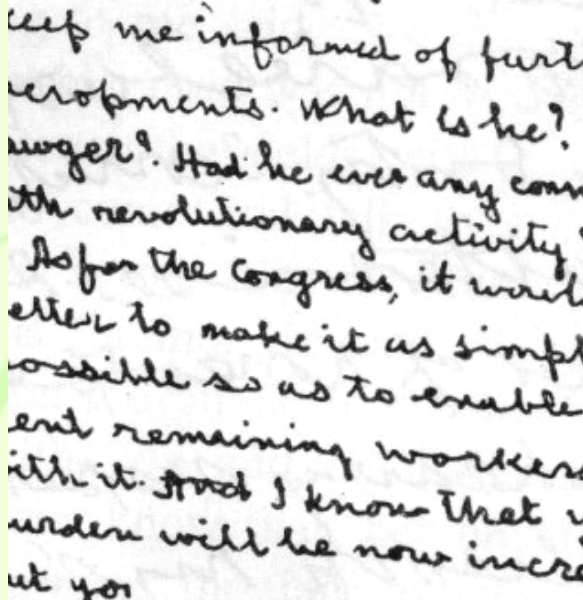 eep me informed of furt
elopments. What is he?
awyer? Had he ever any conn
ith revolutionary activity?
As for the Congress, it would
etter to make it as simpl
ossible so as to enable
ent remaining workers
ith it. And I know that y
urden will be now incre
ut you